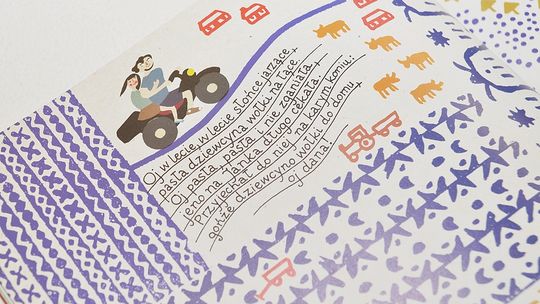 Oj w lecie, w lecie, słońce jarzące,
pasła dziewcyna wołki na łące.
Oj pasła, pasła i nie zganiała,
jeno na Jańka długo cekała.
Przyjechał do niej na karym koniu:
gońze dziewcyno wołki do domu,
oj dana!